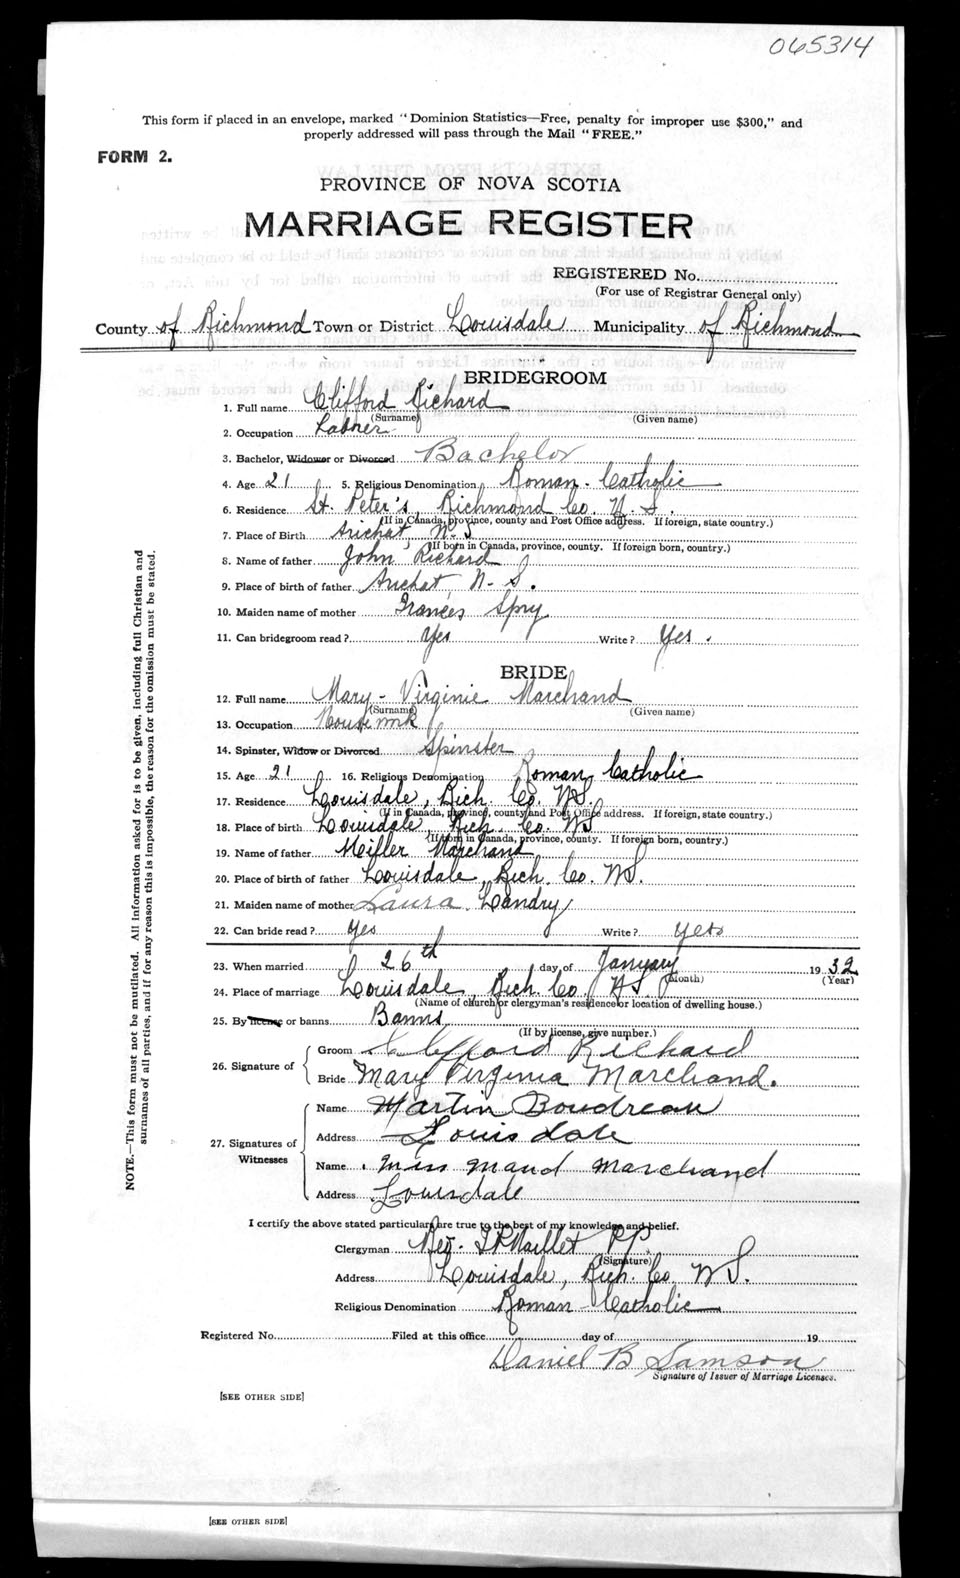 065314
This form if placed in an envelope, marked "Dominion Statistics—Free, penalty for improper use $300," and
properly addressed will pass through the Mail "FREE."
FORM 2.
PROVINCE OF NOVA SCOTIA
MARRIAGE REGISTER
REGISTERED No.
(For use of Registrar General only)
County of Richmond Town or District Louisdale Municipality of Richmond
BRIDEGROOM
1. Full name Clifford Richard
(Surname) (Given name)
2. Occupation Labrer
3. Bachelor, Widower or Divorced Bachelor
4. Age 21 5. Religious Denomination Roman - Catholic
6. Residence St. Peter's, Richmond Co. N. S.
(If in Canada, province, county and Post Office address. If foreign, state country.)
7. Place of Birth Arichat N-S
(If born in Canada, province, county. If foreign born, country.)
8. Name of father John Richard
9. Place of birth of father Arichat, N- S.
10. Maiden name of mother Frances Spry
11. Can bridegroom read? Yes Write? Yes.
BRIDE
12. Full name Mary - Virginie Marchand
(Surname) (Given name)
13. Occupation Housework
14. Spinster, Widow or Divorced Spinster
15. Age 21 16. Religious Denomination Roman Catholic
17. Residence Louisdale, Rich. Co. NS.
(If in Canada, province, county and Post Office address. If foreign, state country.)
18. Place of birth Louisdale, Rich. Co. NS
(If born in Canada, province, county. If foreign born, country.)
19. Name of father Meiller Marchand
20. Place of birth of father Louisdale, Rich. Co. NS.
21. Maiden name of mother Laura Landry
22. Can bride read? Yes Write? yes
23. When married 26th day of January 1932
(Month) (Year)
24. Place of marriage Louisdale, Rich. Co. NS
(Name of church or clergyman's residence or location of dwelling house.)
25. By license or banns Banns
(If by license, give number.)
26. Signature of
Groom Clifford Richard
Bride Mary Virginia Marchand.
27. Signatures of Witnesses
Name Martin Boudreau
Address Louisdale
Name Miss Maud Marchand
Address Louisdale
I certify the above stated particulars are true to the best of my knowledge and belief.
Clergyman Rev. Maillet P.P.
(Signature)
Address Louisdale, Rich. Co. NS.
Religious Denomination Roman - Catholic
Registered No. Filed at this office day of 19
Daniel B Samson
Signature of Issuer of Marriage Licenses.
[SEE OTHER SIDE]
[SEE OTHER SIDE]
NOTE.—This form must not be mutilated. All information asked for is to be given, including full Christian and
surnames of all parties, and if for any reason this is impossible, the reason for the omission must be stated.